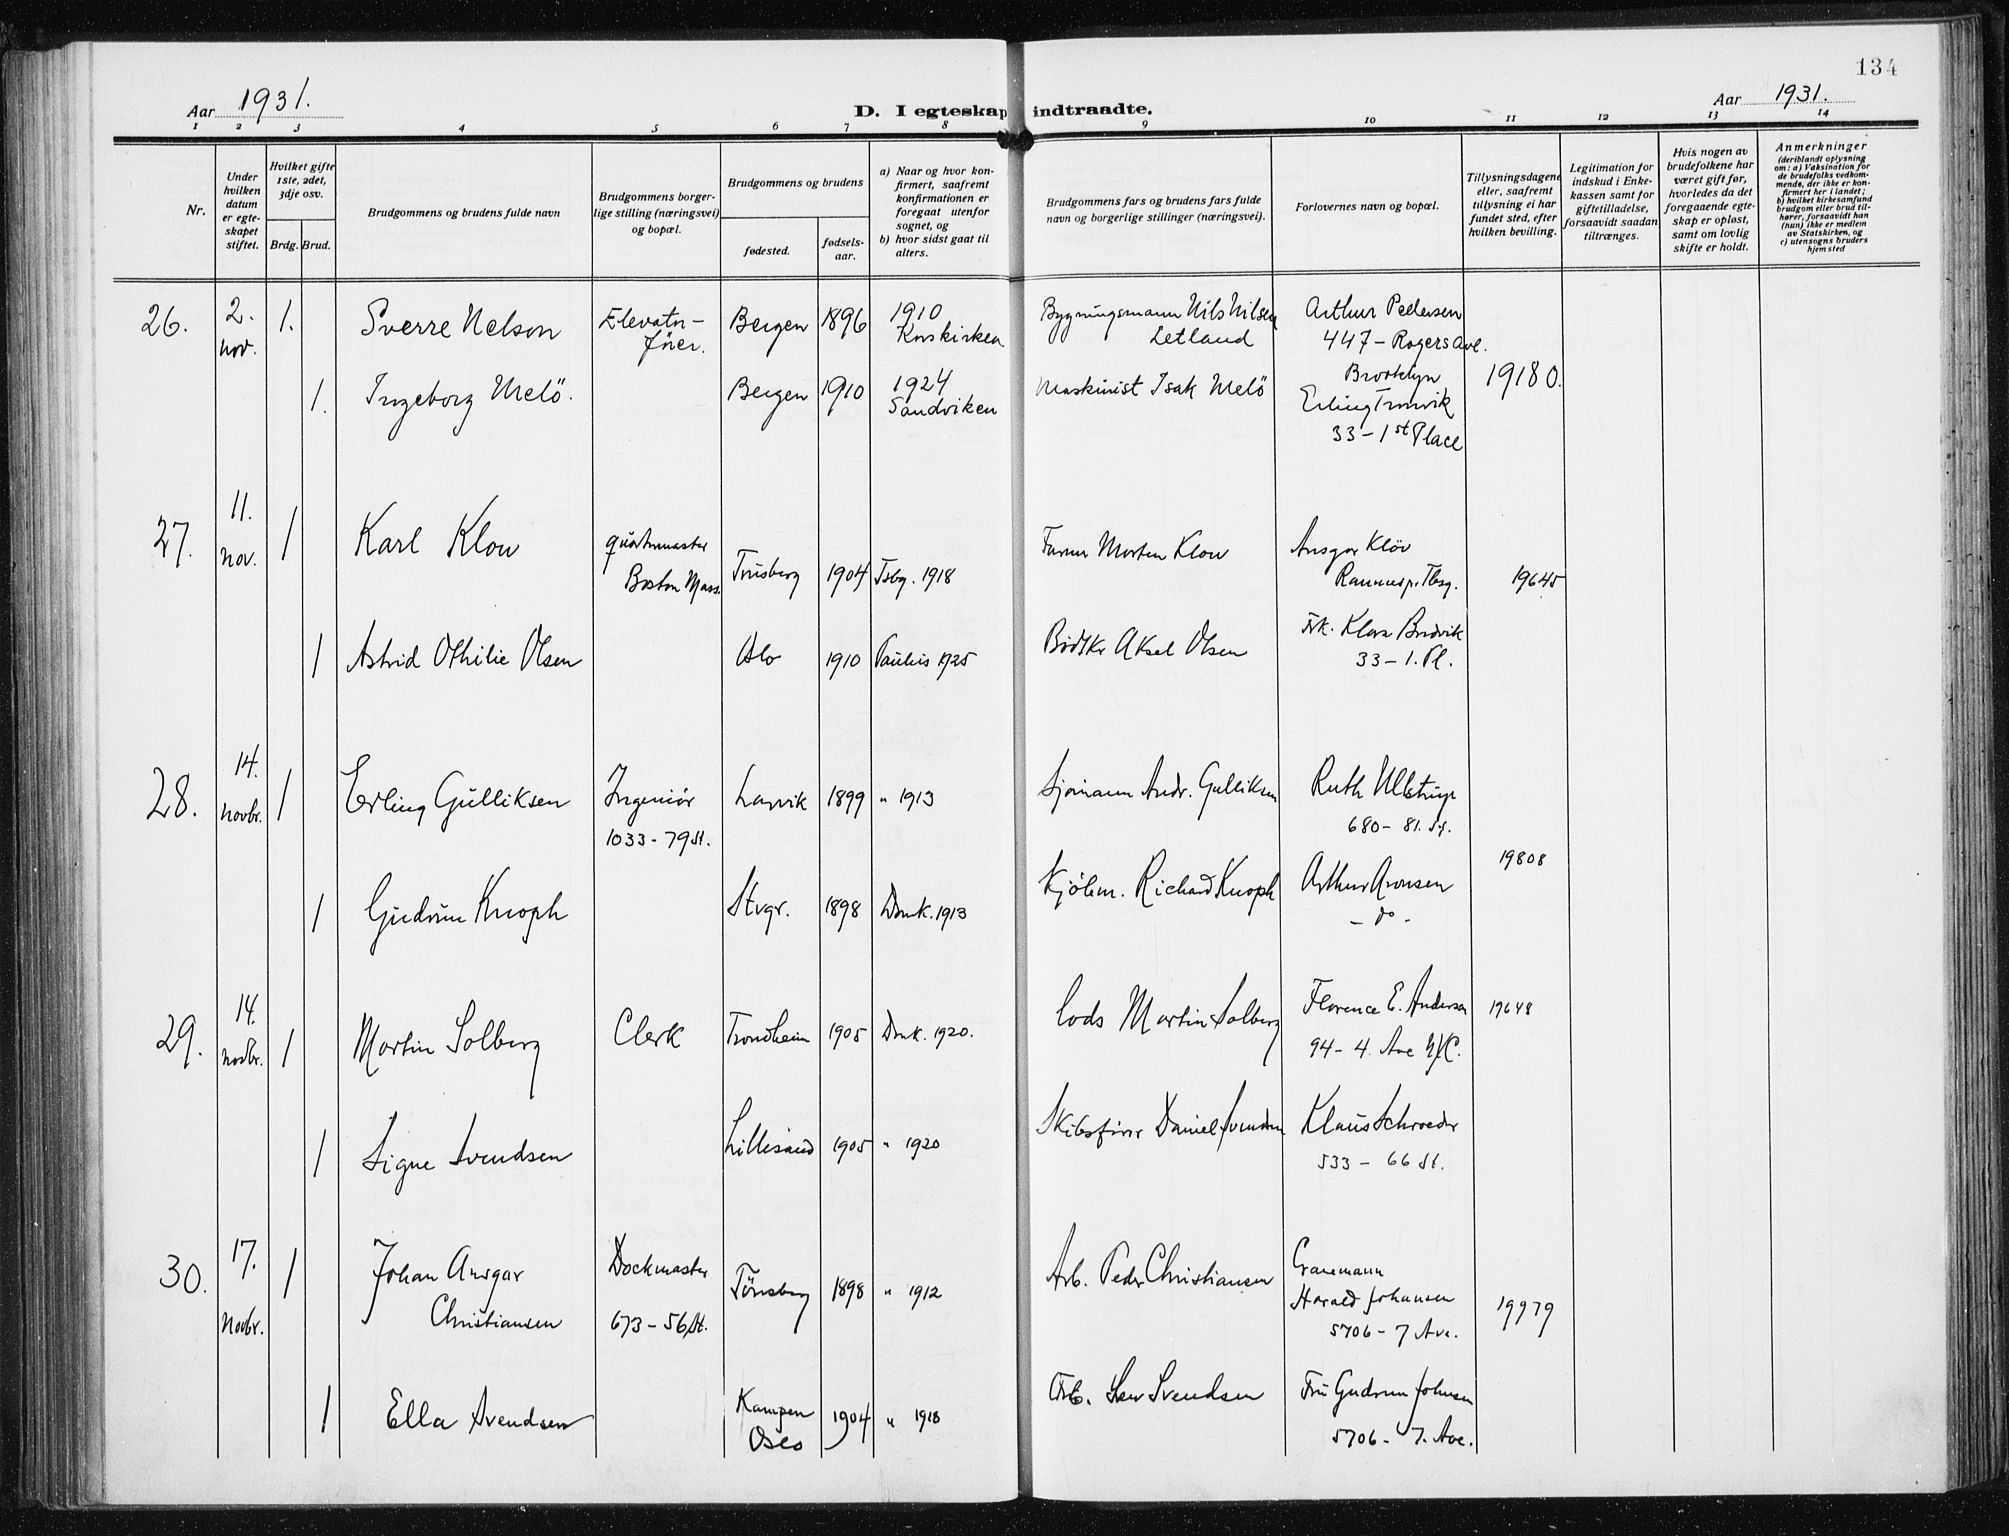 134
Aar 1931.
D. I egteskap indtraadte.
Aar 1931.
1 2 3 4 5 6 7 8 9 10 11 12 13 14
Nr.
Under hvilken datum er egteskapet stiftet.
Hvilket gifte 1ste, 2det, 3dje osv.
Brdg. Brud.
Brudgommens og brudens fulde navn
Brudgommens borgerlige stilling (næringsvei) og bopæl.
Brudgommens og brudens
fødested.
fødselsaar.
a) Naar og hvor konfirmert, saafremt konfirmationen er foregaat utenfor sognet, og
b) hvor sidst gaat til alters.
Brudgommens fars og brudens fars fulde navn og borgerlige stillinger (næringsvei).
Forlovernes navn og bopæl.
Tillysningsdagene eller, saafremt tillysning ei har fundet sted, efter hvilken bevilling.
Legitimation for indskud i Enkekassen samt for giftetilladelse, forsaavidt saadan tiltrænges.
Hvis nogen av brudefolkene har været gift før, hvorledes da det foregaaende egteskap er opløst, samt om lovlig skifte er holdt.
Anmerkninger
(deriblandt oplysning om: a) Vaksination for de brudefolks vedkommende, der ikke er konfirmert her i landet; b) hvilket kirkesamfund brudgom eller brud tilhører, forsaavidt han (hun) ikke er medlem av Statskirken, og c) utensogns bruders hjemsted
26. 2. nov. 1. Sverre Nelson Elevatorfører. Bergen 1896 1910 Korskirken Bygningsmann Nils Nilsen Letland Arthur Pedersen
447 - Rogers Ave.
Brooklyn 19180.
1. Ingeborg Melö. Bergen 1910 1924 Sandviken Maskinist Isak Melö Erling
33 - 1st Place
27. 11. nov. 1 Karl Klou Boston Mass. Tønsberg 1904 Tsbg. 1918 Farmer Morten Klou Ansgar Klöv
19645
1 Astrid Othilie Olsen Oslo 1910 Paulus 1925 Bødtker Aksel Olsen Frk. Klara Bredvik
33 - 1. Pl.
28. 14. novbr. 1 Erling Gulliksen Ingeniör
1033 - 79 St. Larvik 1899 " 1913 Sjömann Andr. Gulliksen Ruth Ulstrup
680 - 81. St.
19808
1 Gudrun Knoph Stvgr. 1898 Domk. 1913 Kjøbm. Richard Knoph Arthur Aronsen
- do -
29. 14. novbr. 1 Martin Solberg Clerk Trondheim 1905 Domk. 1920. Lods Martin Solberg Florence E. Anderson 19648
94 - 4. Ave NYC.
1 Signe Svendsen Lillesand 1905 " 1920 Skibsfører Daniel Svendsen Klaus Schroeder
533 - 66 St.
30. 17. Novbr. 1 Johan Ansgar
Christiansen Dockmaster
673 - 56 St. Tönsberg 1898 " 1912 Arb. Peder Christiansen Cranemann
Harald Johansen 19979
5706 - 7 Ave.
1 Ella Svendsen Kampen
Oslo 1904 " 1918 Arb. Svendsen Fru Gudrun Johnsen
5706 - 7. Ave.